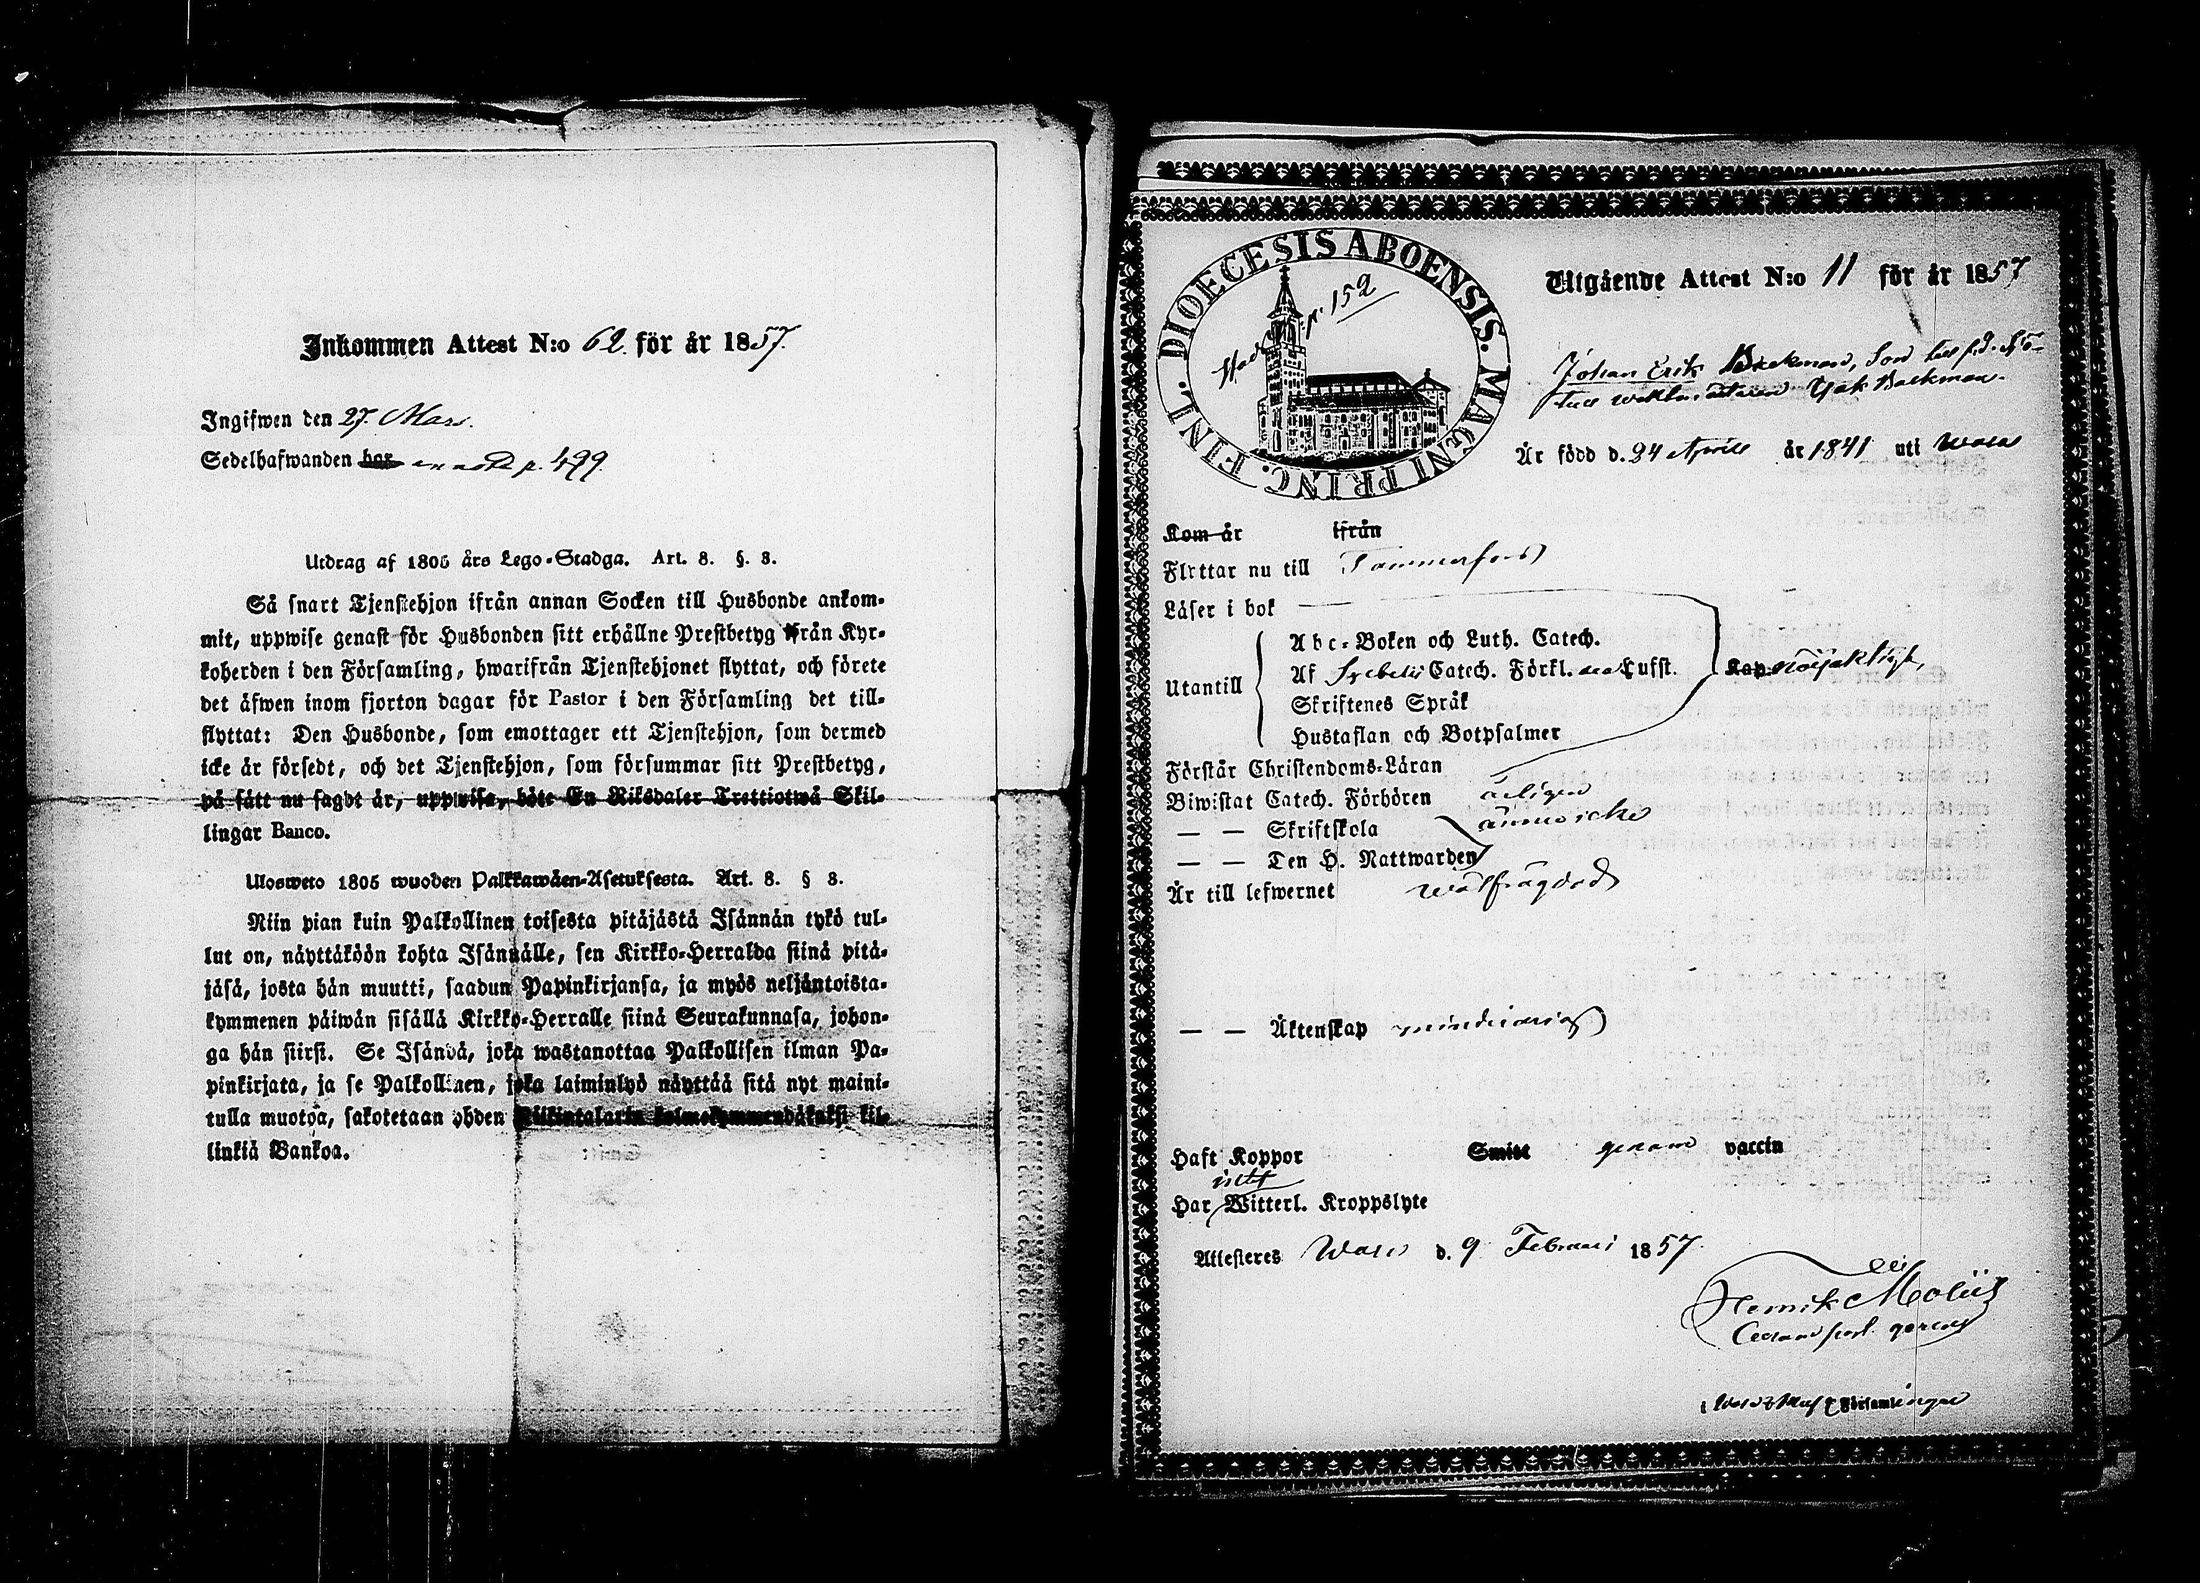 Inkommen Attest N:o 62. för år 1857.
Ingifwen den 27. Mars.
Sedelhafwanden har p. 499.
Utdrag af 1805 års Lego-Stadga. Art. 8. §. 3.
Så snart Tjenstehjon ifrån annan Socken till Husbonde ankom-
mit, uppwise genast för Husbonden sitt erhållne Prestbetyg ifrån Kyr-
koherden i den Församling, hwarifrån Tjenstehjonet flyttat, och förete
det äfwen inom fjorton dagar för Pastor i den Församling det till-
flyttat: Den Husbonde, som emottager ett Tjenstehjon, som dermed
icke är försedt, och det Tjenstehjon, som försummar sitt Prestbetyg,
på sätt nu sagdt är, uppwisa, böte En Riksdaler Trettiotwå Skil-
lingar Banco.
Ulosweto 1805 wuoden Palkkawäen-Asetuksesta. Art. 8. § 3.
Niin pian kuin Palkollinen toisesta pitäjästä Isännän tykö tul-
lut on, näyttäköön kohta Isännälle, sen Kirkko-Herralda siinä pitä-
jäsä, josta hän muutti, saadun Papinkirjansa, ja myös neljäntoista-
kymmenen päiwän sisällä Kirkko-Herralle siinä Seurakunnasa, johon-
ga hän siirsi. Se Isändä, joka wastanottaa Palkollisen ilman Pa-
pinkirjata, ja se Palkollinen, joka laiminlyö näyttää sitä nyt maini-
tulla muotoa, sakotetaan yhden Riikintalarin kolmekymmendäkaksi kil-
linkiä Bankoa.
DIOECESIS ABOENSIS. MAGNI PRINC. FINL.
p. 152
Utgående Attest N:o 11 för år 1857
Johan Erik Backman, Son till f.d. Sjö-
Isak Backman.
Är född d. 24 April år 1841 uti Wasa
Kom år ifrån
Flyttar nu till Tammerfors
Läser i bok
Utantill
Abc-Boken och Luth. Catech.
Af Svebelii Catech. Förkl. med Lufft.
Skriftenes Språk
Hustaflan och Botpsalmer
Kap. nöjaktigt,
Förstår Christendoms-Läran
Biwistat Catech. Förhören årligen
— — Skriftskola ännu icke
— — Den H. Nattwarden
Är till lefwernet wälfrägdad
— — Äktenskap minderårig
Haft Koppor Smitt genom vaccin
intet
Har Witterl. Kroppslyte
Attesteres Wasa d. 9 Februari 1857.
Henrik Molüs
Församlingar